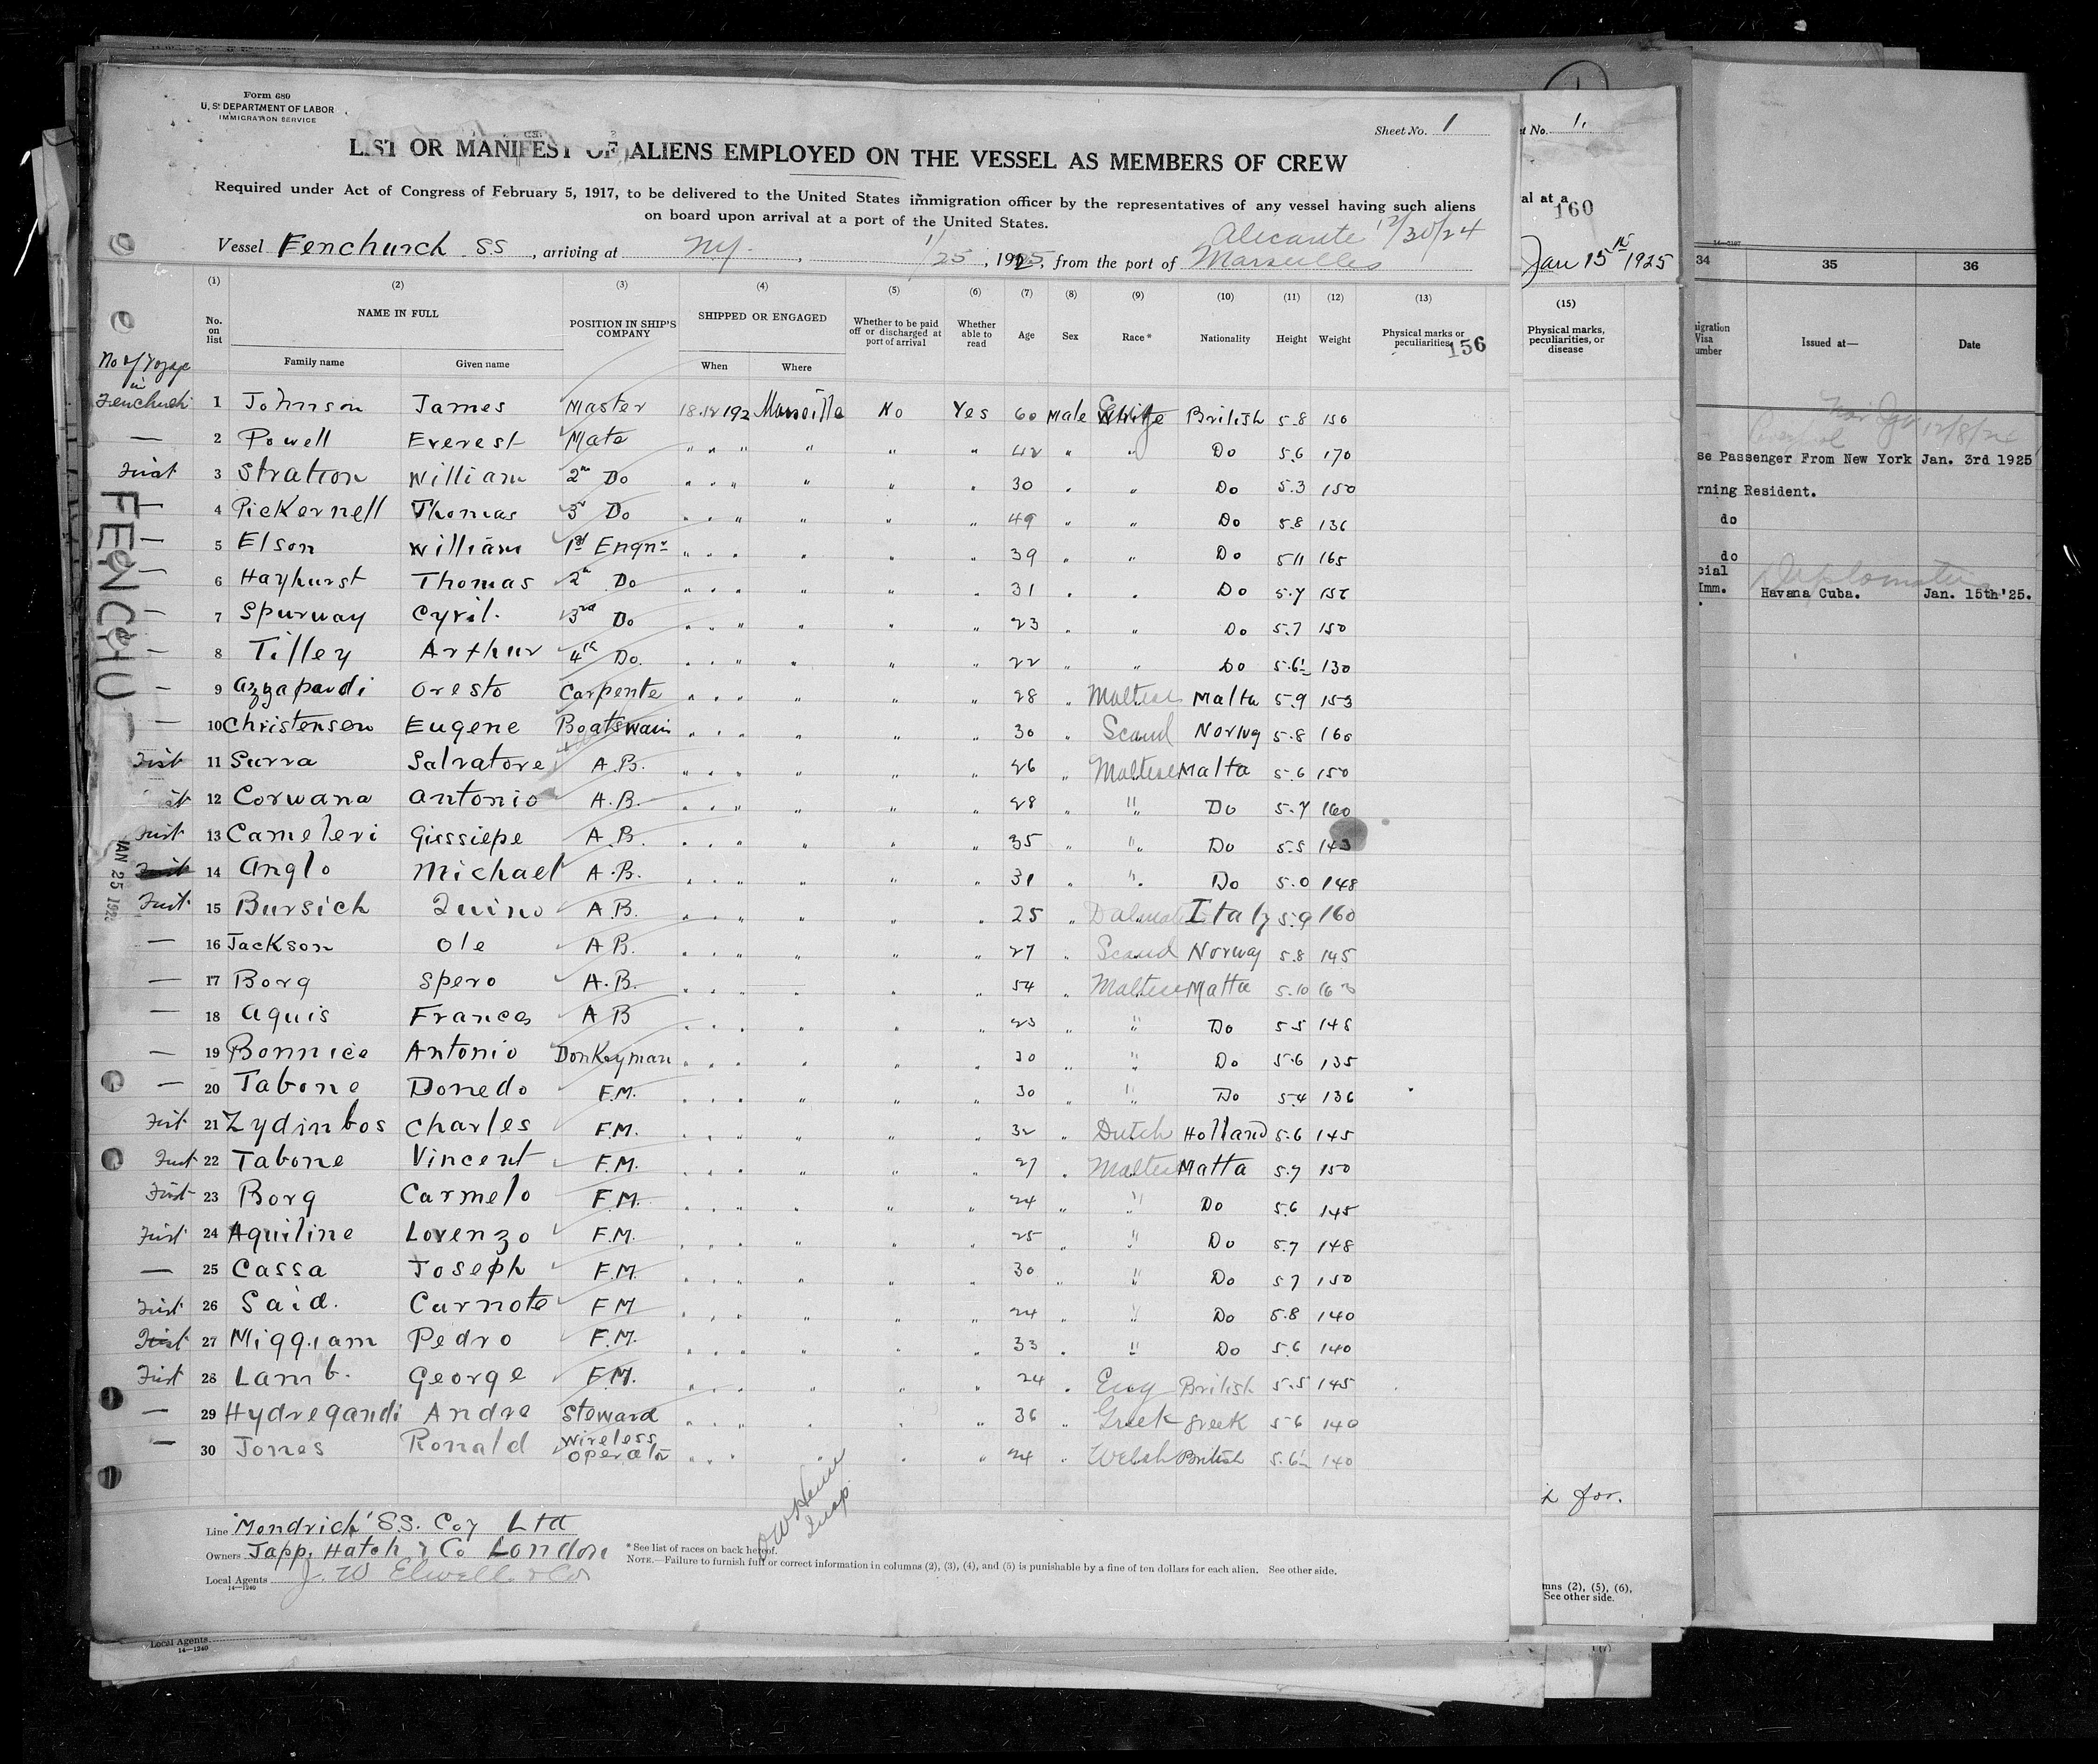 Form 680
U. S. DEPARTMENT OF LABOR
IMMIGRATION SERVICE
Sheet No. 1
LIST OR MANIFEST OF ALIENS EMPLOYED ON THE VESSEL AS MEMBERS OF CREW
Required under Act of Congress of February 5, 1917, to be delivered to the United States immigration officer by the representatives of any vessel having such aliens
on board upon arrival at a port of the United States.
Alicante 12/30/24
Vessel Fenchurch SS, arriving at NY. 1/25, 1925, from the port of Marseilles
(1) (2) (3) (4) (5) (6) (7) (8) (9) (10) (11) (12) (13)
No. on list NAME IN FULL POSITION IN SHIP'S COMPANY SHIPPED OR ENGAGED Whether to be paid off or discharged at port of arrival Whether able to read Age Sex Race* Nationality Height Weight Physical marks or peculiarities 156
No of Voyage in Fenchurch Family name Given name When Where
1 Johnson James Master 18.12.192 Marseille No Yes 60 Male White British 5.8 150
— 2 Powell Everest Mate " " " " " " 42 " " Do 5.6 170
First 3 Stratton William 2nd Do " " " " " " 30 " " Do 5.3 150
— 4 Pickernell Thomas 3rd Do " " " " " " 49 " " Do 5.8 136
— 5 Elson William 1st Engnr " " " " " " 39 " " Do 5 11 165
— 6 Hayhurst Thomas 2n Do " " " " " " 31 " " Do 5.7
— 7 Spurway Cyril. 3rd Do " " " " " " 23 " " Do 5.7 150
— 8 Tilley Arthur 4th Do. " " " " " " 22 " " Do 5.6½ 130
— 9 Azzapardi Oresto Carpente " " " " " " 28 " Maltese Malta 5.9 153
— 10 Christensen Eugene Boatswain " " " " " " 30 " Scand Norwg 5.8 160
First 11 Surra Salvatore A.B. " " " " " " 26 " Maltese Malta 5.6 150
12 Corwana Antonio A.B. " " " " " " 28 " " Do 5.7 160
First 13 Cameleri Gissiepe A.B. " " " " " " 35 " " Do 5.5 143
14 Anglo Michael A.B. " " " " " " 31 " " Do 5.0 148
First 15 Bursich Quino A.B. " " " " " " 25 " Dalmat Italy 5.9 160
— 16 Jackson Ole A.B. " " " " " " 27 " Scand Norway 5.8 145
— 17 Borg Spero A.B. " " " " " " 54 " Maltese Malta 5.10 160
— 18 Aquis Frances A B " " " " " " 23 " " Do 5 5 148
— 19 Bonnice Antonio Donkeyman " " " " " " 30 " " Do 5.6 135
— 20 Tabone Donedo F.M. " " " " " " 30 " " Do 5.4 136
First 21 Zydinbos Charles F.M. " " " " " " 32 " Dutch Holland 5.6 145
First 22 Tabone Vincent F.M. " " " " " " 27 " Maltese Malta 5.7 150
First 23 Borg Carmelo F.M. " " " " " " 24 " " Do 5.6 145
First 24 Aquiline Lorenzo F.M. " " " " " " 25 " " Do 5.7 148
— 25 Cassa Joseph F.M. " " " " " " 30 " " Do 5 7 150
First 26 Said. Carnote F M " " " " " " 24 " " Do 5.8 140
First 27 Miggiam Pedro F.M. " " " " " " 33 " " Do 5.6 140
First 28 Lamb. George F.M. " " " " " " 24 " Eng British 5.5 145
— 29 Hydregandi Andre Steward " " " " " " 36 " Greek Greek 5 6 140
— 30 Jones Ronald Wireless Operator " " " " " " 24 " Welsh British 5.6½ 140
FENCHU
JAN 25 192
Line 'Mendrich' SS. Coy Ltd
Owners Japp, Hatch & Co London
Local Agents J. W Elwell & Co
14—1240
Insp
* See list of races on back hereof.
NOTE.—Failure to furnish full or correct information in columns (2), (3), (4), and (5) is punishable by a fine of ten dollars for each alien. See other side.
Local Agents
14—1240
t No. 1.
al at a
160
Jan 15th 1925
(15)
Physical marks, peculiarities, or disease
for.
mns (2), (5), (6),
See other side.
34 35 36
migration Visa umber Issued at— Date
12/8/24
se Passenger From New York Jan. 3rd 1925
rning Resident.
do
do
cial Diplomatic
Imm. Havana Cuba. Jan. 15th '25.